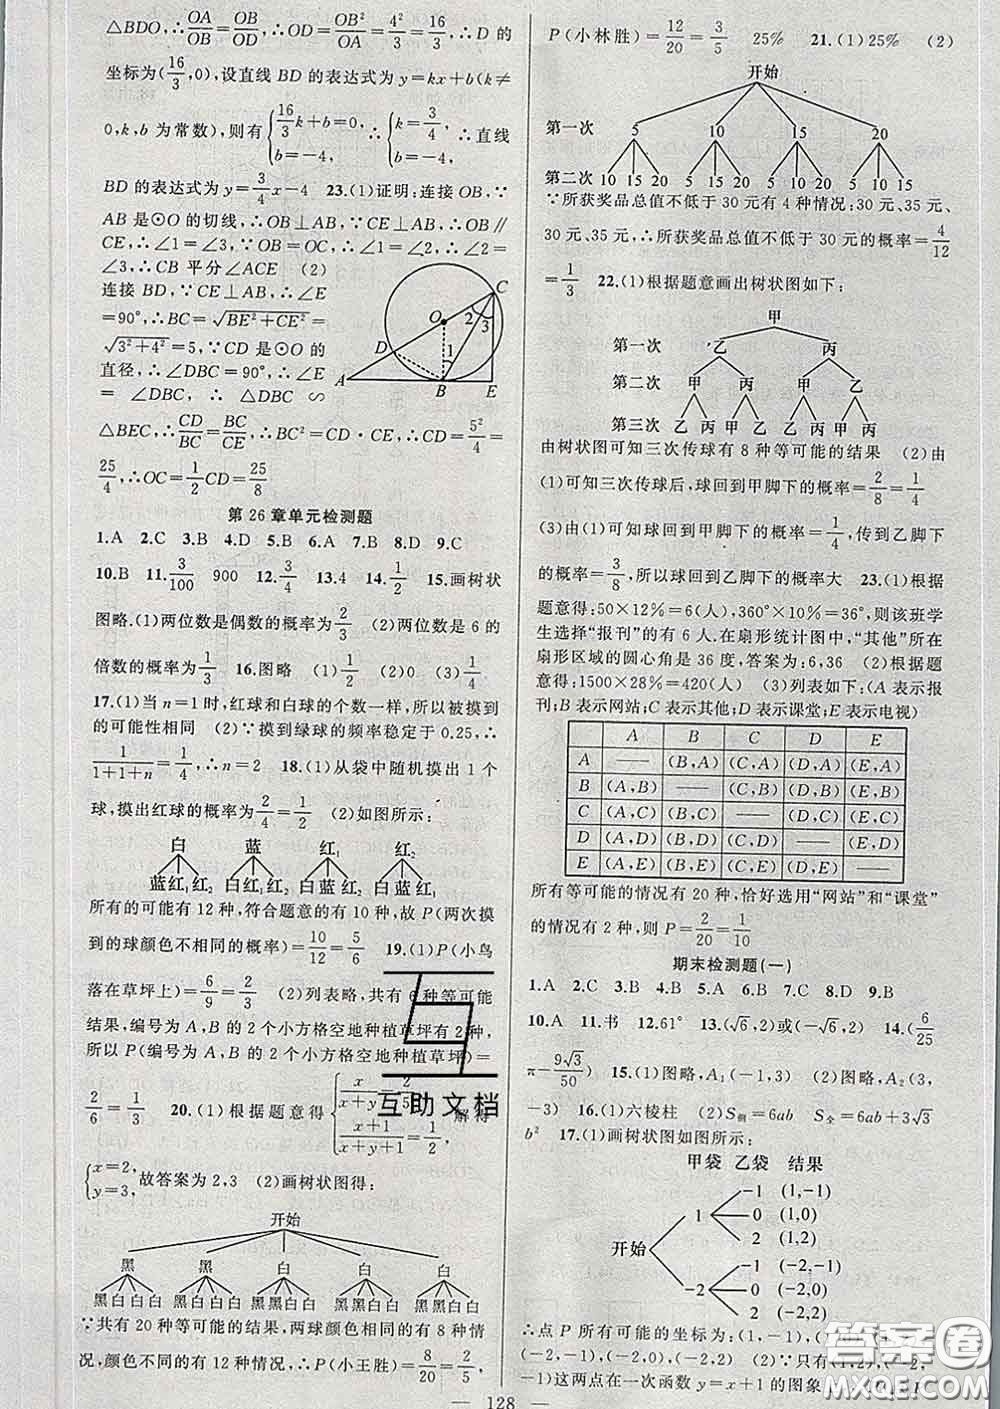 △BDO,∴OA/OB=OB/OD,∴OD=OB²/OA=4²/3=16/3,∴D的
坐标为(16/3,0),设直线BD的表达式为y=kx+b(k≠
0,k,b为常数),则有{16/3k+b=0, b=-4, ∴{k=3/4, b=-4, ∴直线
BD的表达式为y=3/4x-4 23.(1)证明:连接OB,∵
AB是⊙O的切线,∴OB⊥AB,∵CE⊥AB,∴OB∥
CE,∴∠1=∠3,∵OB=OC,∴∠1=∠2,∴∠2=
∠3,∴CB平分∠ACE (2)
连接BD,∵CE⊥AB,∴∠E
=90°,∴BC=√(BE²+CE²)=
√(3²+4²)=5,∵CD是⊙O的
直径,∴∠DBC=90°,∴∠E
=∠DBC,∴△DBC∽
△BEC,∴CD/BC=BC/CE,∴BC²=CD·CE,∴CD=5²/4=
25/4,∴OC=1/2CD=25/8
A B C D E O 1 2 3
第26章单元检测题
1.A 2.C 3.B 4.D 5.B 6.A 7.B 8.D 9.C
10.B 11.3/100 900 12.3/4 13.4 14.1/2 15.画树状
图略.(1)两位数是偶数的概率为2/3 (2)两位数是6的
倍数的概率为1/3 16.图略 (1)1/2 (2)0 (3)1/4
17.(1)当n=1时,红球和白球的个数一样,所以被摸到
的可能性相同 (2)∵摸到绿球的频率稳定于0.25,∴
1/(1+1+n)=1/4,∴n=2 18.(1)从袋中随机摸出1个
球,摸出红球的概率为2/4=1/2 (2)如图所示:
白 蓝 红₁ 红₂
蓝红₁红₂ 白红₁红₂ 白蓝红₂ 白蓝红₁
所有的可能有12种,符合题意的有10种,故P(两次摸
到的球颜色不相同的概率)=10/12=5/6 19.(1)P(小鸟
落在草坪上)=6/9=2/3 (2)列表略,共有6种等可能
结果,编号为A,B的2个小方格空地种植草坪有2种,
所以P(编号为A,B的2个小方格空地种植草坪)=
2/6=1/3 20.(1)根据题意得{x/(x+y)=2/5, (x+1)/(x+y+1)=1/2, 解得
{x=2, y=3, 故答案为2,3 (2)画树状图得:
开始
黑 黑 白 白 白
黑白白白 黑白白白 黑黑白白 黑黑白白 黑黑白白
∵共有20种等可能的结果,两球颜色相同的有8种情
况,颜色不同的有12种情况,∴P(小王胜)=8/20=2/5,
P(小林胜)=12/20=3/5 25% 21.(1)25% (2)
开始
第一次 5 10 15 20
第二次 10 15 20 5 15 20 5 10 20 5 10 15
∵所获奖品总值不低于30元有4种情况:30元、35元、
30元、35元,∴所获奖品总值不低于30元的概率=4/12
=1/3 22.(1)根据题意画出树状图如下:
甲
第一次 乙 丙
第二次 甲 丙 甲 乙
第三次 乙 丙 甲 乙 乙 丙 甲 丙
由树状图可知三次传球有8种等可能的结果 (2)由
(1)可知三次传球后,球回到甲脚下的概率=2/8=1/4
(3)由(1)可知球回到甲脚下的概率=1/4,传到乙脚下
的概率=3/8,所以球回到乙脚下的概率大 23.(1)根据
题意得:50×12%=6(人),360°×10%=36°,则该班学
生选择“报刊”的有6人.在扇形统计图中,“其他”所在
扇形区域的圆心角是36度,答案为:6,36 (2)根据题
意得:1500×28%=420(人) (3)列表如下:(A表示报
刊;B表示网站;C表示其他;D表示课堂;E表示电视)
A B C D E
A —— (B,A) (C,A) (D,A) (E,A)
B (A,B) —— (C,B) (D,B) (E,B)
C (A,C) (B,C) —— (D,C) (E,C)
D (A,D) (B,D) (C,D) —— (E,D)
E (A,E) (B,E) (C,E) (D,E) ——
所有等可能的情况有20种,恰好选用“网站”和“课堂”
的情况有2种,则P=2/20=1/10
期末检测题(一)
1.A 2.C 3.B 4.A 5.B 6.B 7.C 8.D 9.B
10.A 11.书 12.61° 13.(√6,2)或(-√6,2) 14.(6/25
π-9√3/50) 15.(1)图略,A₁(-1,3) (2)图略,A₂(3,
-3) 16.(1)六棱柱 (2)S侧=6ab S全=6ab+3√3
b² 17.(1)画树状图如图所示:
甲袋 乙袋 结果
-1 (1,-1)
1 0 (1,0)
2 (1,2)
开始
-1 (-2,-1)
-2 0 (-2,0)
2 (-2,2)
∴点P所有可能的坐标为:(1,-1),(1,0),(1,2),
(-2,-1),(-2,0),(-2,2) (2)∵只有(1,2),(-2,
-1)这两点在一次函数y=x+1的图象上,
— 128 —
互助文档
答案圈
MXQE.COM